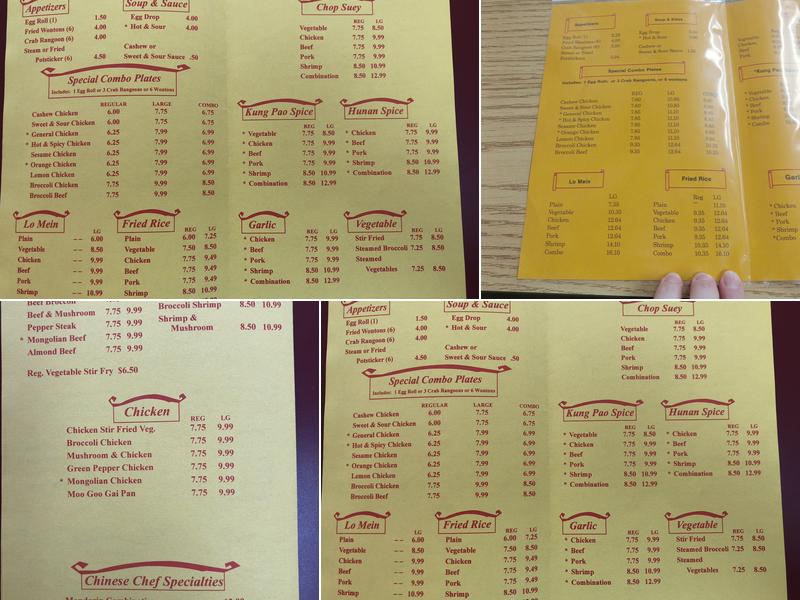 Appetizers
Egg Roll (1) 1.50
Fried Wontons (6) 4.00
Crab Rangoon (6) 4.00
Steam or Fried
Potsticker (6) 4.50
Soup & Sauce
Egg Drop 4.00
* Hot & Sour 4.00
Cashew or
Sweet & Sour Sauce .50
Chop Suey
REG LG
Vegetable 7.75 8.50
Chicken 7.75 9.99
Beef 7.75 9.99
Pork 7.75 9.99
Shrimp 8.50 10.99
Combination 8.50 12.99
Special Combo Plates
Includes: 1 Egg Roll or 3 Crab Rangoons or 6 Wontons
REGULAR LARGE COMBO
Cashew Chicken 6.00 7.75 6.75
Sweet & Sour Chicken 6.00 7.75 6.75
* General Chicken 6.25 7.99 6.99
* Hot & Spicy Chicken 6.25 7.99 6.99
Sesame Chicken 6.25 7.99 6.99
* Orange Chicken 6.25 7.99 6.99
Lemon Chicken 6.25 7.99 6.99
Broccoli Chicken 7.75 9.99 8.50
Broccoli Beef 7.75 9.99 8.50
Kung Pao Spice
REG LG
* Vegetable 7.75 8.50
* Chicken 7.75 9.99
* Beef 7.75 9.99
* Pork 7.75 9.99
* Shrimp 8.50 10.99
* Combination 8.50 12.99
Hunan Spice
REG LG
* Chicken 7.75 9.99
* Beef 7.75 9.99
* Pork 7.75 9.99
* Shrimp 8.50 10.99
* Combination 8.50 12.99
Lo Mein
LG
Plain -- 6.00
Vegetable -- 8.50
Chicken -- 9.99
Beef -- 9.99
Pork -- 9.99
Shrimp -- 10.99
Fried Rice
REG LG
Plain 6.00 7.25
Vegetable 7.50 8.50
Chicken 7.75 9.49
Beef 7.75 9.49
Pork 7.75 9.49
Shrimp 8.50 10.99
Garlic
REG LG
* Chicken 7.75 9.99
* Beef 7.75 9.99
* Pork 7.75 9.99
* Shrimp 8.50 10.99
* Combination 8.50 12.99
Vegetable
REG LG
Stir Fried 7.75 8.75
Steamed Broccoli 7.25 8.50
Steamed
Vegetables 7.25 8.50
Appetizers
Egg Roll (1)
Fried Wontons (6)
Crab Rangoon (6)
Steam or Fried
Potstickers
Soup & Sides
Egg Drop
* Hot & Sour
Cashew or
Sweet & Sour Sauce
Special Combo Plates
Includes: 1 Egg Roll, or 3 Crab Rangoons, or 6 wontons
REG LG COMBO
Cashew Chicken 7.60
Sweet & Sour Chicken 7.60
* General Chicken 7.85 11.10
* Hot & Spicy Chicken 7.85 11.10
Sesame Chicken 7.85 11.10
* Orange Chicken 7.85 11.10
Lemon Chicken 7.85 11.10
Broccoli Chicken 9.35 12.64
Broccoli Beef 9.35 12.64
Lo Mein
LG
Plain 7.35
Vegetable 10.35
Chicken 12.64
Beef 12.64
Pork 12.64
Shrimp 14.10
Combo 16.10
Fried Rice
Reg LG
Plain
Vegetable 9.35
Chicken 9.35 12.64
Beef 9.35 12.64
Pork 9.35 12.64
Shrimp 10.35 14.10
Combo 10.35 16.10
Beef Broccoli
Beef & Mushroom 7.75 9.99
Pepper Steak 7.75 9.99
* Mongolian Beef 7.75 9.99
Almond Beef 7.75 9.99
Broccoli Shrimp 8.50 10.99
Shrimp &
Mushroom 8.50 10.99
Reg. Vegetable Stir Fry $6.50
Chicken
REG LG
Chicken Stir Fried Veg. 7.75 9.99
Broccoli Chicken 7.75 9.99
Mushroom & Chicken 7.75 9.99
Green Pepper Chicken 7.75 9.99
* Mongolian Chicken 7.75 9.99
Moo Goo Gai Pan 7.75 9.99
Chinese Chef Specialties
Appetizers
Egg Roll (1) 1.50
Fried Wontons (6) 4.00
Crab Rangoon (6) 4.00
Steam or Fried
Potsticker (6) 4.50
Soup & Sauce
Egg Drop 4.00
* Hot & Sour 4.00
Cashew or
Sweet & Sour Sauce .50
Chop Suey
REG LG
Vegetable 7.75 8.50
Chicken 7.75 9.99
Beef 7.75 9.99
Pork 7.75 9.99
Shrimp 8.50 10.99
Combination 8.50 12.99
Special Combo Plates
Includes: 1 Egg Roll or 3 Crab Rangoons or 6 Wontons
REGULAR LARGE COMBO
Cashew Chicken 6.00 7.75 6.75
Sweet & Sour Chicken 6.00 7.75 6.75
* General Chicken 6.25 7.99 6.99
* Hot & Spicy Chicken 6.25 7.99 6.99
Sesame Chicken 6.25 7.99 6.99
* Orange Chicken 6.25 7.99 6.99
Lemon Chicken 6.25 7.99 6.99
Broccoli Chicken 7.75 9.99 8.50
Broccoli Beef 7.75 9.99 8.50
Kung Pao Spice
REG LG
* Vegetable 7.75 8.50
* Chicken 7.75 9.99
* Beef 7.75 9.99
* Pork 7.75 9.99
* Shrimp 8.50 10.99
* Combination 8.50 12.99
Hunan Spice
REG LG
* Chicken 7.75 9.99
* Beef 7.75 9.99
* Pork 7.75 9.99
* Shrimp 8.50 10.99
* Combination 8.50 12.99
Lo Mein
LG
Plain -- 6.00
Vegetable -- 8.50
Chicken -- 9.99
Beef -- 9.99
Pork -- 9.99
Shrimp -- 10.99
Fried Rice
REG LG
Plain 6.00 7.25
Vegetable 7.50 8.50
Chicken 7.75 9.49
Beef 7.75 9.49
Pork 7.75 9.49
Shrimp 8.50 10.99
Garlic
REG LG
* Chicken 7.75 9.99
* Beef 7.75 9.99
* Pork 7.75 9.99
* Shrimp 8.50 10.99
* Combination 8.50 12.99
Vegetable
REG LG
Stir Fried 7.75 8.75
Steamed Broccoli 7.25 8.50
Steamed
Vegetables 7.25 8.50